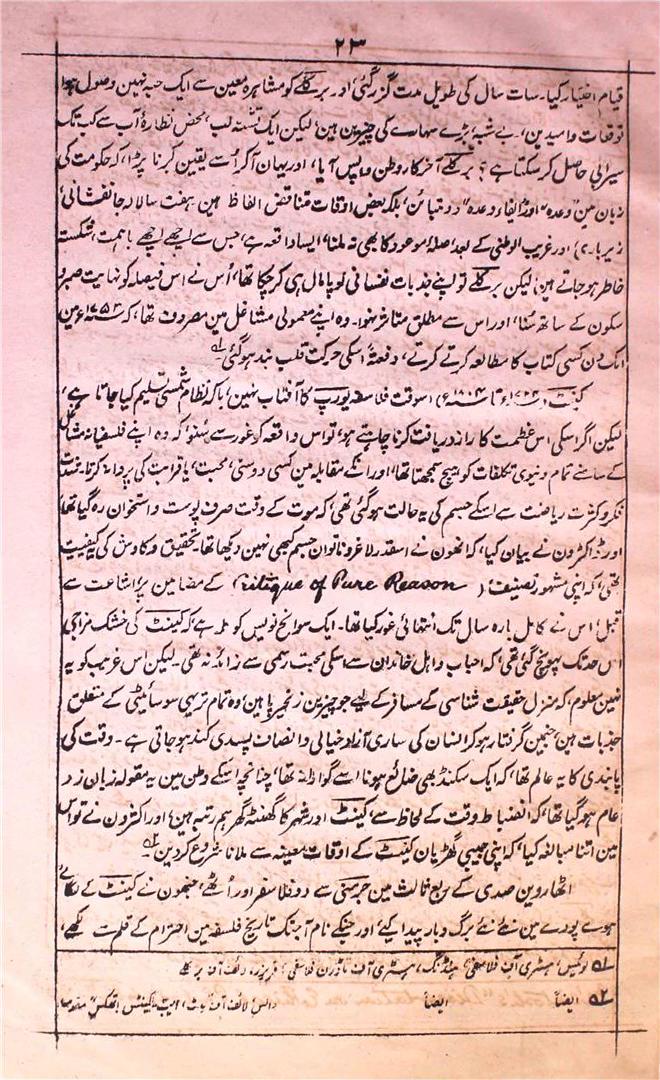 ۲۳
قیام اختیار کیا۔ سات سال کی طویل مدت گزر گئی، اور برکلے کو مشاہرہ معین سے ایک حبہ نہین وصول ہوا
توقعات و امیدین، بے شبہ بڑے سہارے کی چیزین ہین، لیکن ایک تشنہ لب، محض نظارۂ آب سے کب تک
سیرابی حاصل کر سکتا ہے؟ برکلے آخر کار وطن واپس آیا، اور یہان آکر اُسے یقین کرنا پڑا، کہ حکومت کی
زبان مین "وعدہ" اور "ایفاء وعدہ" دو متبائن، بلکہ بعض اوقات متناقض الفاظ ہین ہفت سالہ جانفشانی،
زیرباری، اور غریب الوطنی کے بعد، صلۂ موعود کا بھی نہ ملنا، ایسا واقعہ ہے، جس سے اچھے اچھے باہمت، شکستہ
خاطر ہو جاتے ہین، لیکن برکلے تو اپنے جذبات نفسانی کو پامال ہی کر چکا تھا، اُس نے اس فیصلہ کو نہایت صبر و
سکون کے ساتھ سُنا، اور اس سے مطلق متاثر نہوا۔ وہ اپنے معمولی مشاغل مین مصروف تھا، کہ ۱۷۵۳ء مین
ایک دن کسی کتاب کا مطالعہ کرتے کرتے، دفعتہً اسکی حرکت قلب بند ہو گئی۔ ۱؎
کینٹ (۱۷۲۴ء تا ۱۸۰۴ء) اسوقت فلاسفہ یورپ کا آفتاب نہین، بلکہ نظام شمسی تسلیم کیا جاتا ہے،
لیکن اگر اسکی اس عظمت کا راز دریافت کرنا چاہتے ہو، تو اس واقعہ کو غور سے سُنو، کہ وہ اپنے فلسفیانہ مشاغل
کے سامنے تمام دنیوی تکلفات کو ہیچ سمجھتا تھا، اور انکے مقابلہ مین کسی دوستی، محبت، یا قرابت کی پروا نہ کرتا۔ شدت
فکر و کثرت ریاضت سے اسکے جسم کی یہ حالت ہو گئی تھی، کہ موت کے وقت صرف پوست و استخوان رہ گیا تھا،
اور ڈاکٹرون نے بیان کیا، کہ انھون نے اسقدر لاغر و ناتوان جسم کبھی نہین دیکھا تھا۔ تحقیق و کاوش کی یہ کیفیت
تھی، کہ اپنی مشہور تصنیف (Critique of Pure Reason) کے مضامین پر اشاعت سے
قبل، اس نے کامل بارہ سال تک انتہائی غور کیا تھا۔ ایک سوانح نویس کو گلہ ہے، کہ کینٹ کی خشک مزاجی
اس حد تک پہونچ گئی تھی، کہ احباب و اہل خاندان سے اسکی محبت رسمی سے زائد نہ تھی۔ لیکن اس غریب کو یہ
نہین معلوم، کہ منزل حقیقت شناسی کے مسافر کے لیے جو چیزین زنجیر پا ہین، وہ تمام تر یہی سوسائیٹی کے متعلق
جذبات ہین، جنمین گرفتار ہو کر انسان کی ساری آزاد خیالی و انصاف پسندی کند ہو جاتی ہے۔ وقت کی
پابندی کا یہ عالم تھا، کہ ایک سکنڈ بھی ضائع ہونا اسے گوارا نہ تھا، چنانچہ اسکے وطن مین یہ مقولہ زبان زد
عام ہو گیا تھا، کہ انضباط وقت کے لحاظ سے، کینٹ اور شہر کا گھنٹہ گھر ہم رتبہ ہین، اور اکثرون نے تو اس
مین اتنا مبالغہ کیا، کہ اپنی جیبی گھڑیان کینٹ کے اوقات معینہ سے ملانا شروع کر دین۔ ۲؎
اٹھاروین صدی کے ربع ثالث مین جرمنی سے دو فلاسفر اور اُٹھے، جنھون نے کینٹ کے لگائے
ہوے پودے مین نئے نئے برگ و بار پیدا کیے، اور جنکے نام آجتک تاریخ فلسفہ مین احترام کے قلم سے لکھے،
۱؎ لوئیس، ہسٹری آف فلاسفی؛ ہفڈنگ، ہسٹری آف ماڈرن فلاسفی؛ فریزر، لائف آف برکلے
۲؎ ایضاً ایضاً